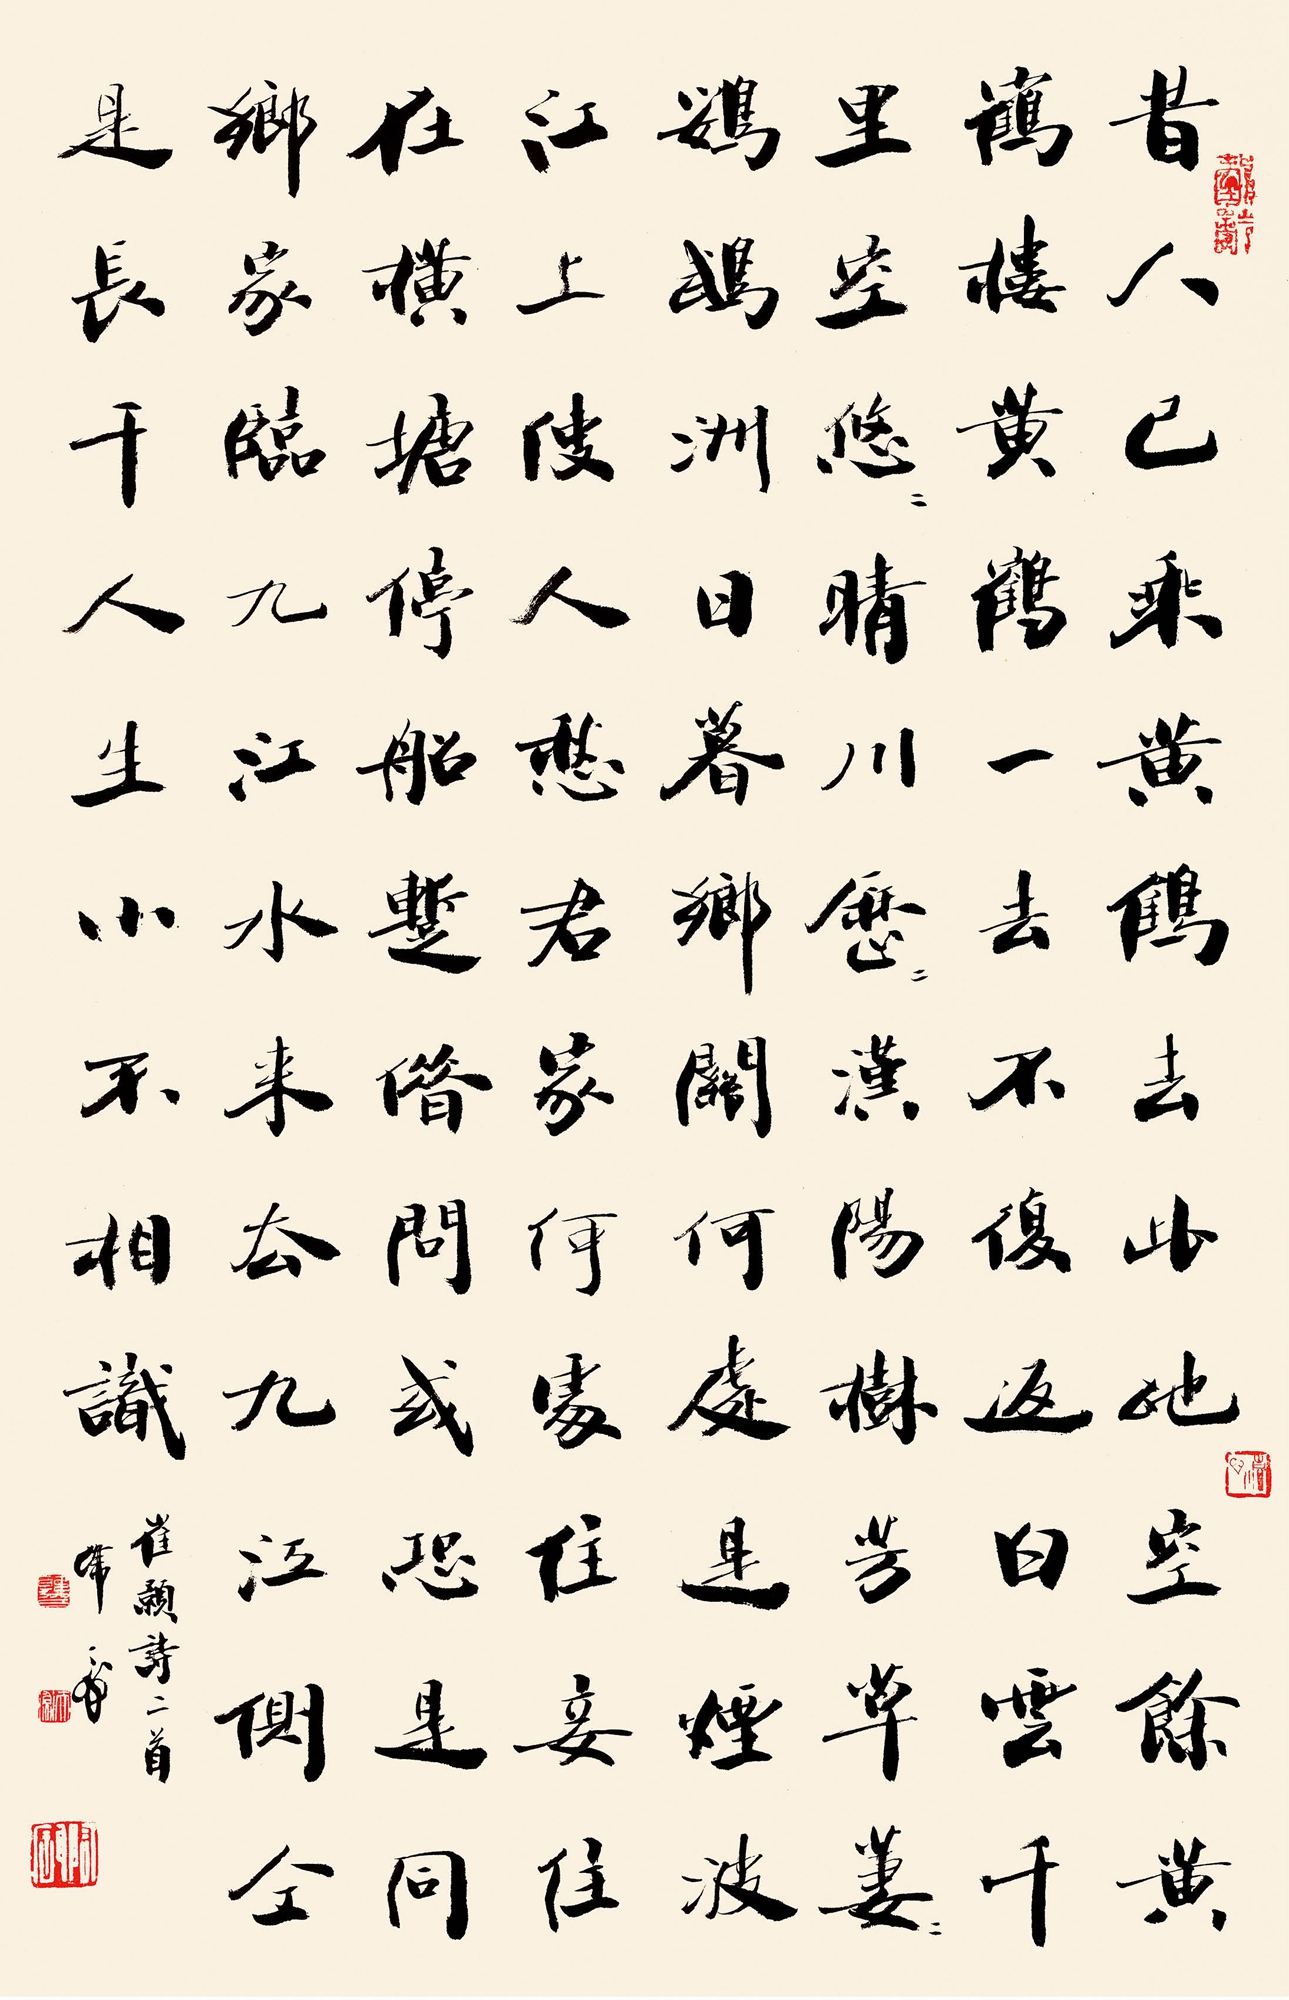 昔人已乘黄鶴去此地空餘黄
鶴樓黄鶴一去不復返白雲千
里空悠〻晴川歷〻漢陽樹芳草萋〻
鸚鵡洲日暮鄉關何處是煙波
江上使人愁君家何處住妾住
在橫塘停船暫借問或恐是同
鄉家臨九江水来去九江側仝
是長干人生小不相識
崔顥詩二首